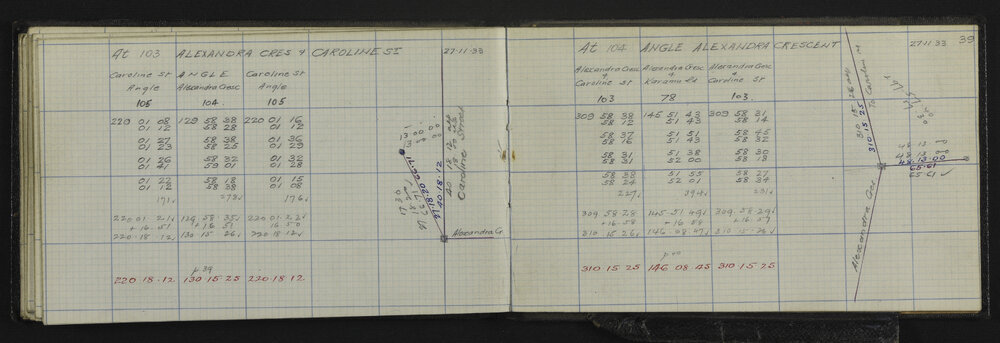 At 103 ALEXANDRA CRES & CAROLINE ST 27-11-33
Caroline St ANGLE Caroline St
Angle Alexandra Cresc Angle
105 104 105
220 01 08 129 58 38 220 01 16
01 12 58 28 01 12
01 07 58 38 01 36
01 23 58 25 01 29
01 26 58 32 01 32
01 41 59 01 01 28
01 22 58 18 01 15
01 12 58 38 01 08
171 278 176
220 01 21 129.58.35 220 01.22
+16.51 +16.51 16.50
220.18.12 130 15 26 220 18.12
p 39
220.18.12 130.15.25 220.18.12
Caroline Street
40 18 12
Alexandra Cr
At 104 ANGLE ALEXANDRA CRESCENT 27-11-33 39
Alexandra Cresc Alexandra Cresc Alexandra Cresc
& & &
Caroline St Karanna Rd Caroline St
103 78 103
309 58 38 145 51 43 309 58 31
58 12 51 43 58 14
58 37 51 51 58 45
58 16 51 43 58 32
58 31 51 38 58 30
58 31 52 00 58 18
58 38 51 55 58 27
58 24 52 01 58 34
227 394 231
309 58 28 145 51 49 309.58.29
+16.58 +16 58 +16.57
310 15 26 146 08.47 310.15.26
310.15.25 146 08.45 310.15.25
310 15 25
To Caroline
Alexandra Cres
65.61
65.61